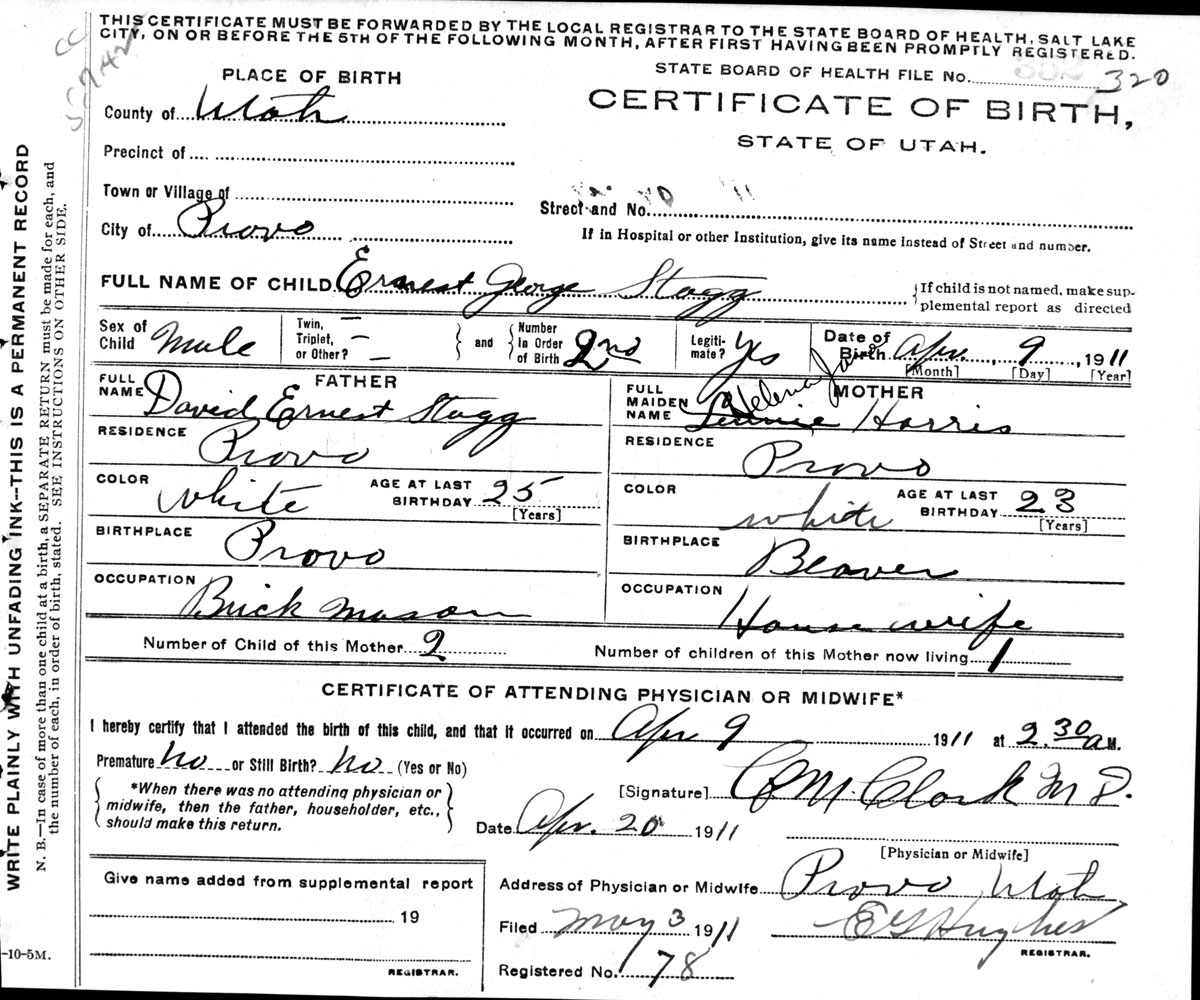 THIS CERTIFICATE MUST BE FORWARDED BY THE LOCAL REGISTRAR TO THE STATE BOARD OF HEALTH, SALT LAKE
CITY, ON OR BEFORE THE 5TH OF THE FOLLOWING MONTH, AFTER FIRST HAVING BEEN PROMPTLY REGISTERED.
PLACE OF BIRTH
STATE BOARD OF HEALTH FILE No. 320
County of Utah
CERTIFICATE OF BIRTH,
STATE OF UTAH.
Precinct of
Town or Village of
Street and No.
City of Provo
If in Hospital or other Institution, give its name instead of Street and number.
FULL NAME OF CHILD Ernest George Stagg
If child is not named, make sup-
plemental report as directed
Sex of Child Male
Twin, Triplet, or Other? — — —
and
Number In Order of Birth 2nd
Legiti-mate? Yes
Date of Birth Apr. 9, 1911
[Month] [Day] [Year]
FATHER
FULL NAME David Ernest Stagg
RESIDENCE Provo
COLOR white AGE AT LAST BIRTHDAY 25
[Years]
BIRTHPLACE Provo
OCCUPATION Brick Mason
MOTHER
FULL MAIDEN NAME Helena Jane Harris
RESIDENCE Provo
COLOR white AGE AT LAST BIRTHDAY 23
[Years]
BIRTHPLACE Beaver
OCCUPATION House wife
Number of Child of this Mother 2
Number of children of this Mother now living 1
CERTIFICATE OF ATTENDING PHYSICIAN OR MIDWIFE*
I hereby certify that I attended the birth of this child, and that it occurred on Apr 9 1911 at 2.30 a M.
Premature No or Still Birth? No (Yes or No)
*When there was no attending physician or
midwife, then the father, householder, etc.,
should make this return.
[Signature] Clark M D.
Date Apr. 20 1911
[Physician or Midwife]
Give name added from supplemental report
19
REGISTRAR.
Address of Physician or Midwife Provo Utah
Filed May 3 1911
E G Hughes
REGISTRAR.
Registered No. 78
WRITE PLAINLY WITH UNFADING INK--THIS IS A PERMANENT RECORD
N. B.—In case of more than one child at a birth, a SEPARATE RETURN must be made for each, and
the number of each, in order of birth, stated. SEE INSTRUCTIONS ON OTHER SIDE.
-10-5M.